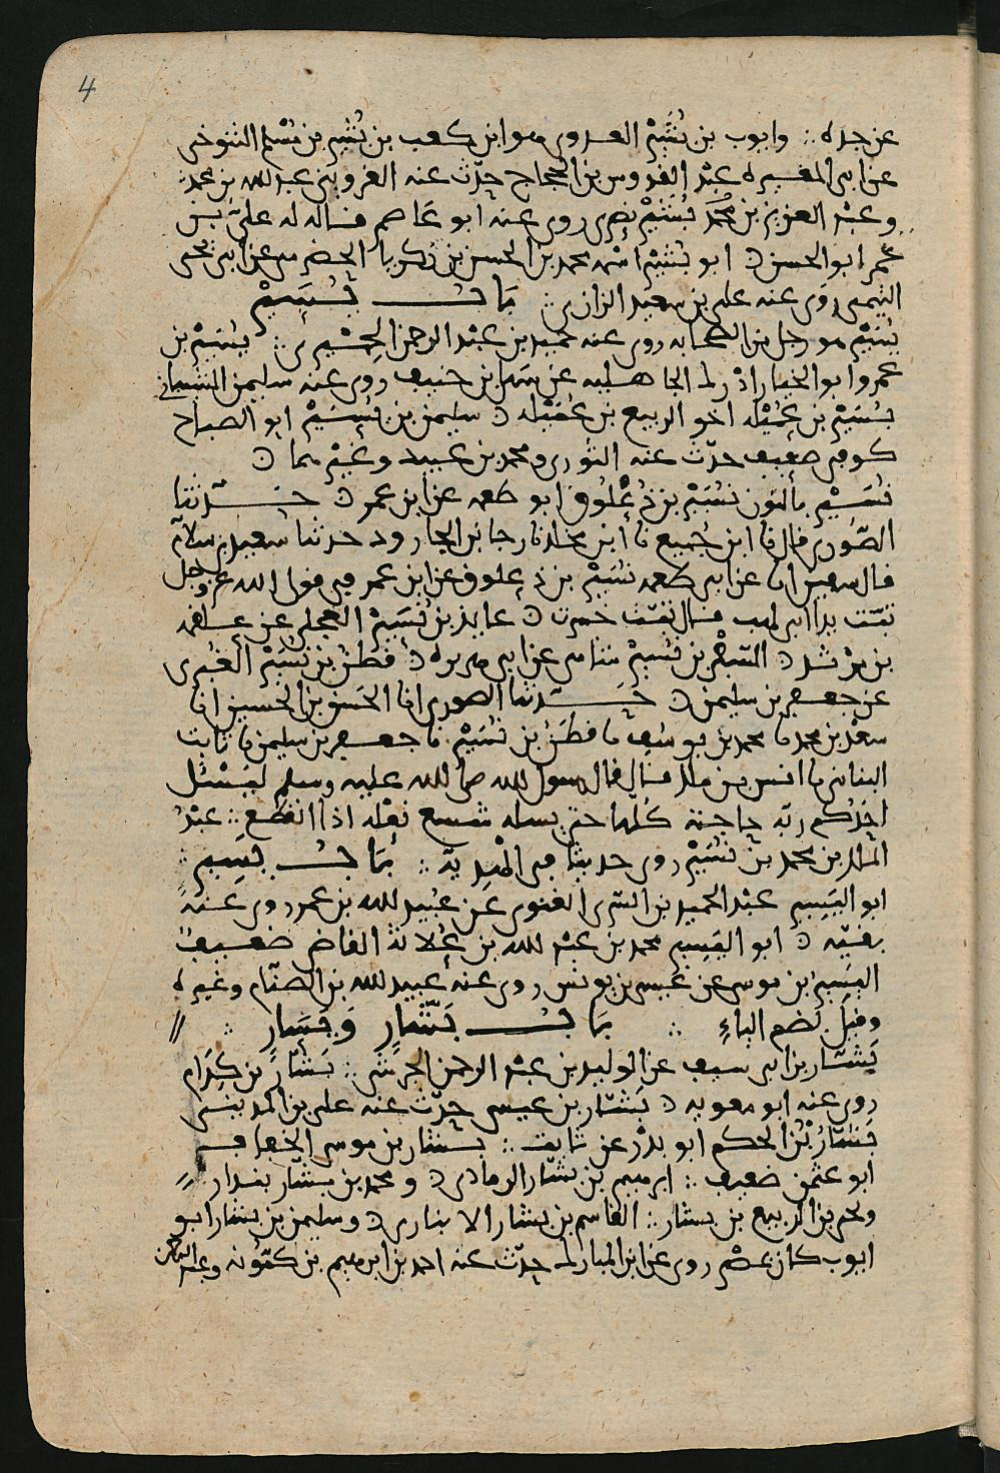 4
عن جده ∴ وايوب بن بُشَيْر العدوي وهو ابن كعب بن بُشَير بن
عن ابي المغيره عبد القدوس بن الحجاج حدّث عنه عبد الله بن محمد
وعبد العزيز بن محمد بُشَيْر بصري روى عنه ابو عاصم قاله له عليّ بن
عمر ابو الحسن ابو بشير اسمه محمد بن الحسن بن زكريا الحضرمي عن ابي يحيى
التيمي روى عنه علي بن سعيد الرازي ∴ بَاب يُسَيْر
يُسَيْر هو رجل من الصحابه روى عنه حميد بن عبد الرحمن الحِمْيَري ∴ يُسَيْر بن
عمرو ابو الخيار ادرك الجاهليه عن سهل بن حنيف روى عنه سليمن الشيباني
يُسَيْر بن عُمَيْله اخو الربيع بن عُمَيْله سليمن بن يُسَيْر ابو الصباح
كوفي ضعيف حدّث عنه الثوري ومحمد بن عبيد وغيرهما
نُسَيْر بالنون نُسَيْر بن ذُعْلُوق ابو طعمه عن ابن عمر حَدّثنا
الصُّوري قال نا ابن جُميع نا ابن مخلد نا رجا بن الجارود حدثنا سعيد بن سلام
قال سفين انا عن ابي طعمه نُسَيْر بن ذعلوق عن ابن عمر في قول الله عز وجل
تبّت يدا ابي لهب قال خسرت عايذ بن نُسَيْر العجلي عن علقمه
بن مرثد السّفر بن نُسَيْر شامي عن ابي هريره قَطَن بن نُسَيْر الغُبَري
عن جعفر بن سليمن حَدّثنا الصوري انا الحَسَن بن الحسين انا
سعْد بن محمد نا محمد بن يوسُف نا قطَن بن نُسَيْر نا جعفر بن سليمن نا ثابت
البناني نا انس بن ملك قال قال رسول الله صلى الله عليه وسلم ليَسْئل
احَدُكم ربّه حاجته كلّها حتى يسله شسع نعْله اذا انقطع ∴ عبْدُ
الملك بن محمد بن نُسَيْر روى حديثا في الهديّة ∴ بَاب يَسِير
ابو اليَسِير عبْد الحميد بن السّري الغنوي عَن عُبَيد الله بن عمر روى عنه
بقيّه ابو اليَسِير محمد بن عبْد الله بن عُلاثة القاضي ضعيف
اليَسِير بن موسى عن عيسى بن يونس روى عنه عبيد الله بن الصنّام وغيره
وقيل بضم الياء ∴ بَاب بَشّار وَيَسَار ∴
بَشّار بن ابي سيف عن الوليد بن عبْد الرحمن الجرَشي ∴ بَشّار بن كِدَام
روى عنه ابو معويه بَشّار بن عيسى حدّث عنه علي بن المديني
بَشّارُ بْنُ الحكم ابو بدْر عن ثابت ∴ بشّار بن موسى الخفاف
ابو عثمن ضعيف ∴ ابرهيم بن بشّار الرمادي ومحمد بن بشّار بندار
بن الربيع بن بشار ∴ القاسم بن بشار الانباري وسليمن بن بشار ابو
ايوب كان بمصر روى عن ابن المبارك حدّث عنه احمد بن ابرهيم بن كمّونه